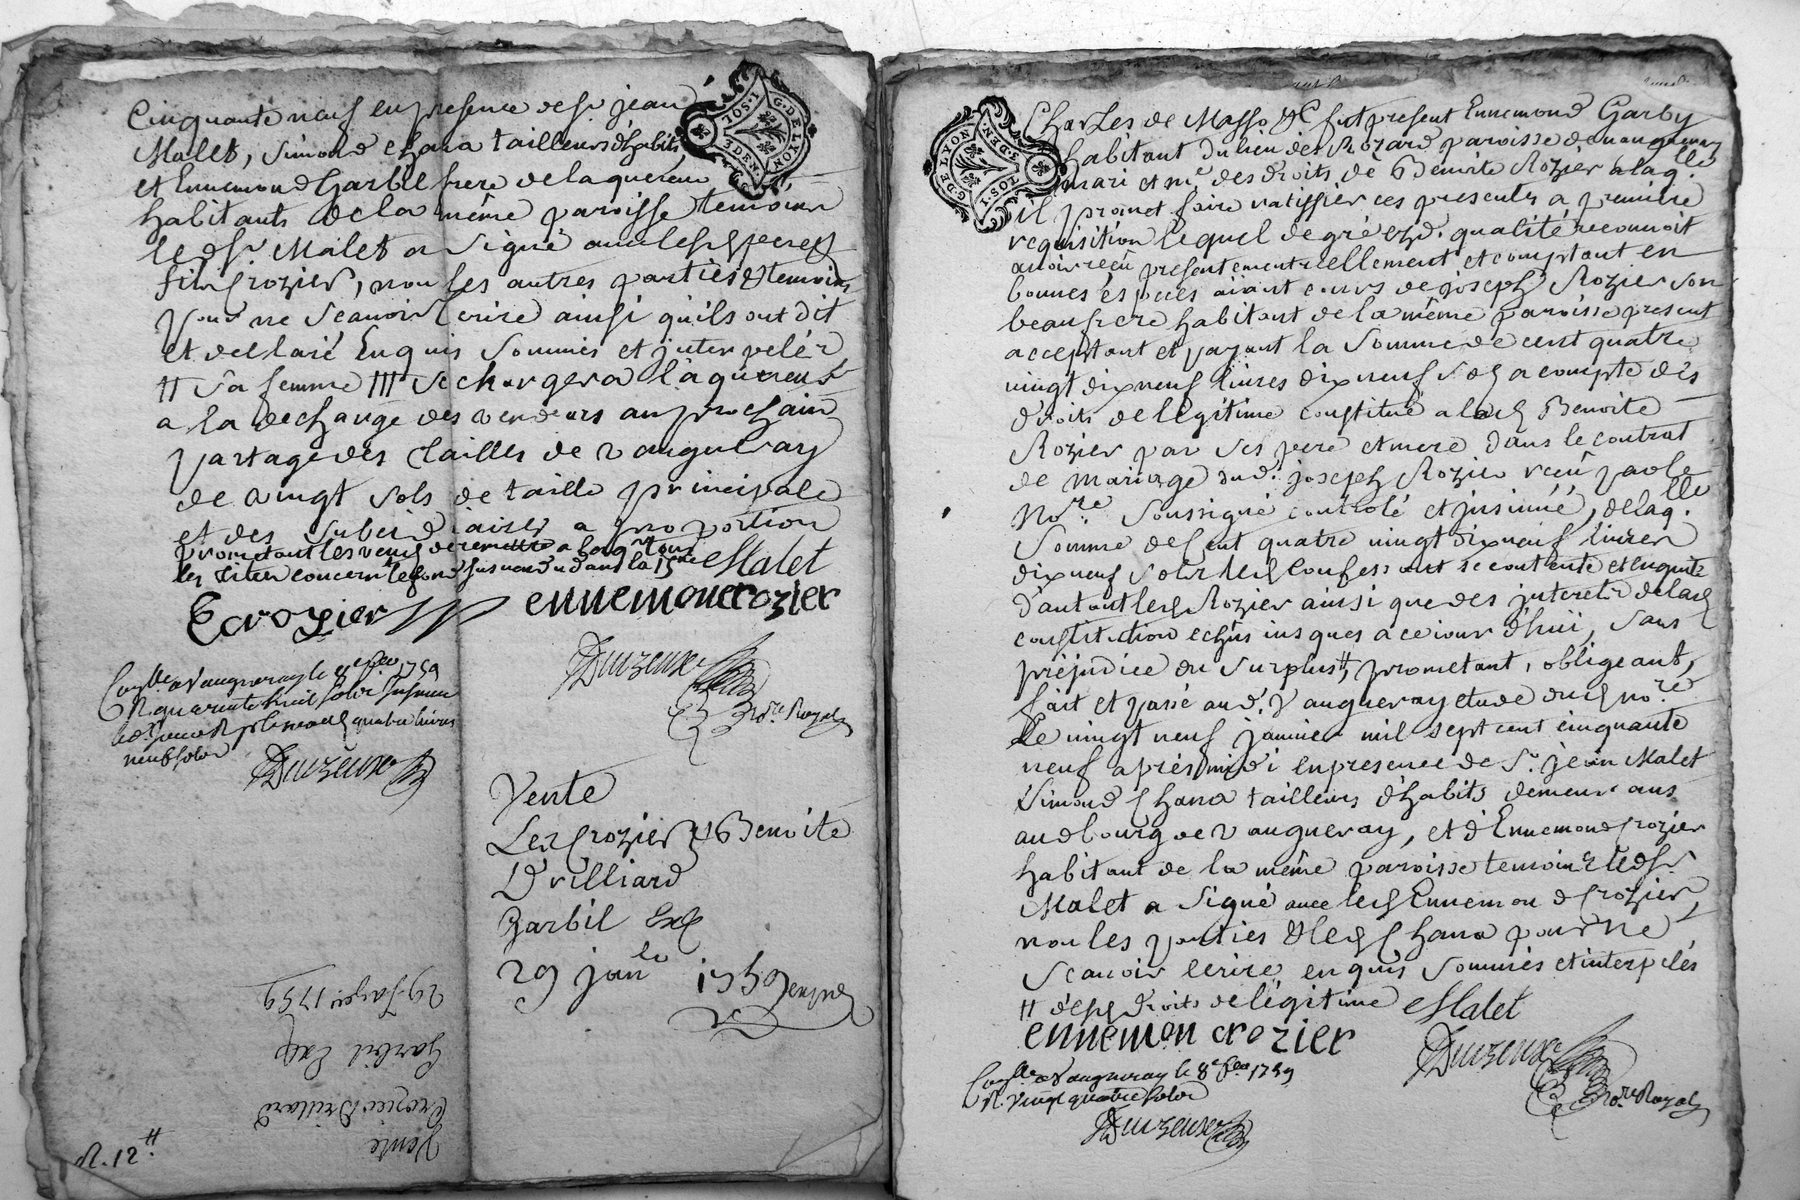 Cinquante neuf en presence de sr. jean
Malet, Simond chana tailleurs d'habits
et Ennemond Garbil frere de laquereur
habitants de la même paroisse temoins
le d. sr. Malet a signé avec lesd.
fils Crozier, non les autres parties & temoins
pour ne scavoir ecrire ainsi qu'ils ont dit
et declaré Enquis sommés et interpelés
# sa femme /// se chargera laquereur
a la decharge des vendeurs au prochain
partage des tailles de vaugneray
de vingt sols de taille principale
et des subsidiaires a proportion
promettant les vend. de remettre a laqr. tous
les titres concernt. le fond
Malet
Ecrozier
ennemoncrozier
Duzeux
no.re Royal
Con.lle a Vaugneray le 8e feo 1759
R. quarente huit sols
quatre livres
neuf sols
Duzeux
Vente
Les Crozier & Benoite
Drilliard
Garbil Exp
29 janer 1759
Vente
Crozier Drillard
Garbil Exp
29 Janer. 1759
R. 12 #
G. DE LYON
1. SOL.
3. DEN.
Charles de Masso &c fut present Ennemond Garby
habitant du lieu de Rozard paroisse de vaugneray
mari et me. des droits de Benoite Rozier a laq.lle
il promet faire ratiffier ces presentes a premiere
requisition lequel de gré end. qualité reconnoit
avoir recu presentement reellement et comptant en
bonnes especes aiant cours de joseph Rozier son
beaufrere habitant de la même paroisse present
acceptant et payant la somme de cent quatre
vingt dix neuf livres dix neuf sols a compte des
droits de legitime constitué a lad. Benoite
Rozier par ses pere et mere dans le contrat
de mariage dud. joseph Rozier recu par le
No.re soussigné controlé et insinué, de laq.lle
somme de Cent quatre vingt dix neuf livres
dix neuf sols led. confessant se contente et en quitte
d'autant led. Rozier ainsi que des interets de lad.
constitution echus jusques a ce jour d'hui, sans
préjudice du surplus #, promettant, obligeant,
fait et passé aud. Vaugneray etude dud. no.re
Le vingt neuf janvier mil sept cent cinquante
neuf après midi en presence de Sr. jean Malet
Simond Chana tailleurs d'habits demeurans
au d bourg de vaugneray, et d'Ennemond Crozier
habitant de la même paroisse temoins led. sr.
Malet a signé avec led. Ennemond Crozier,
non les parties & led. Chana pour ne
scavoir ecrire enquis sommés et interpelés
# desd. droits de légitime
Malet
ennemon crozier
Duzeux
no.re Royal
Con.lle a Vaugneray le 8e feo 1759
R. vingt quatre sols
Duzeux
G. DE LYON
1. SOL
3. DEN.